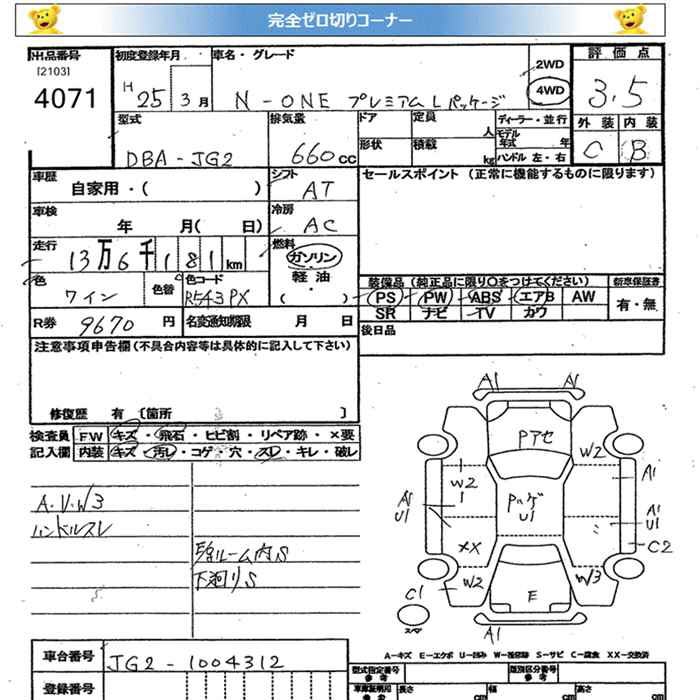 完全ゼロ切りコーナー
出品番号 初度登録年月 車名・グレード 2WD 評価点
[2103]
4071 H 25 3月 N-ONE プレミアムLパッケージ 4WD 3.5
型式 排気量 ドア 定員 人 ディーラー・並行 外装 内装
形状 積載 kg モデル年式 年
DBA-JG2 660cc ハンドル 左・右 C B
車歴 シフト セールスポイント (正常に機能するものに限ります)
自家用・( ) AT
車検 冷房
年 月( 日) AC
走行 燃料
13万6千181km ガソリン
色 色替 色コード 軽油・ 装備品 (純正品に限り○をつけてください) 新車保証書
ワイン R543PX ( ) PS PW ABS エアB AW 有・無
SR ナビ TV カワ
R券 9670円 名変通知期限 月 日 後日品
注意事項申告欄 (不具合内容等は具体的に記入して下さい)
修復歴 有 〔箇所 〕
検査員 FW キズ・飛石・ヒビ割・リペア跡・×要
記入欄 内装 キズ・汚レ・コゲ・穴・スレ・キレ・破レ
A.U.W3
ハンドルスレ
ルーム内S
下廻りS
A1 A1
Pアセ
W2 W2
1
A1
A1
U1
U1
A1
U1
XX C2
W2 W3
C1 E
スペア
A1
A-キズ E-エクボ U-凹み W-補修跡 S-サビ C-腐食 XX-交換済
車台番号 JG2-1004312 型式指定番号 類別区分番号
登録番号 長さ cm 幅 cm 高さ cm